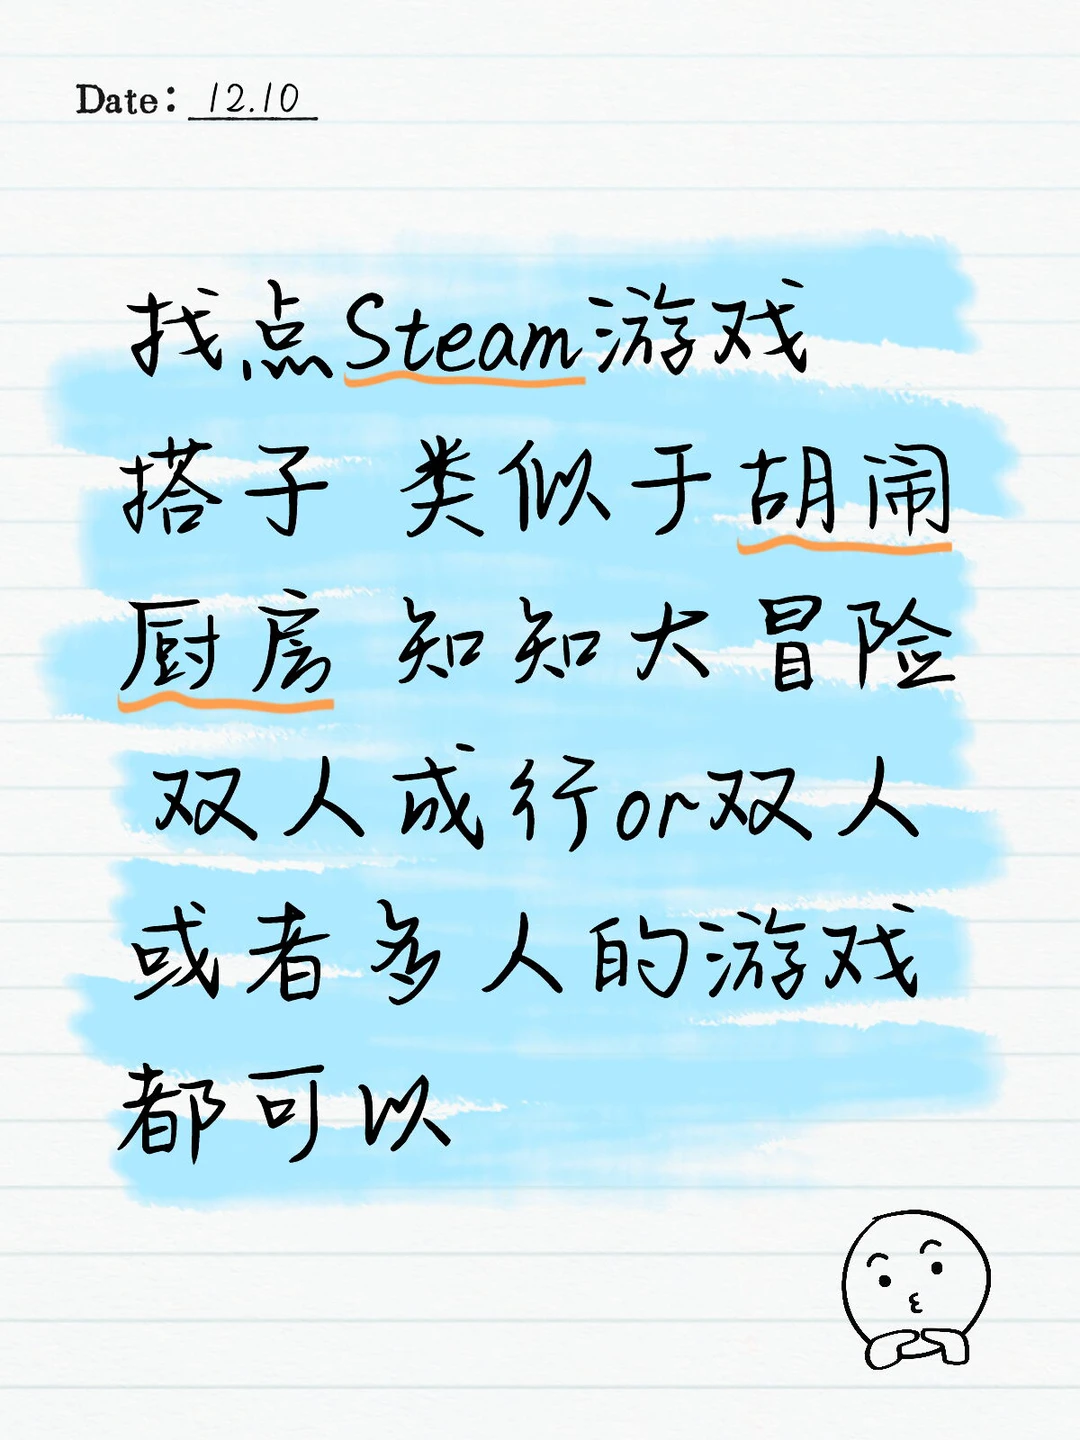 Date: 12.10
找点Steam游戏
搭子 类似于胡闹
厨房 知知大冒险
双人成行or双人
或者多人的游戏
都可以